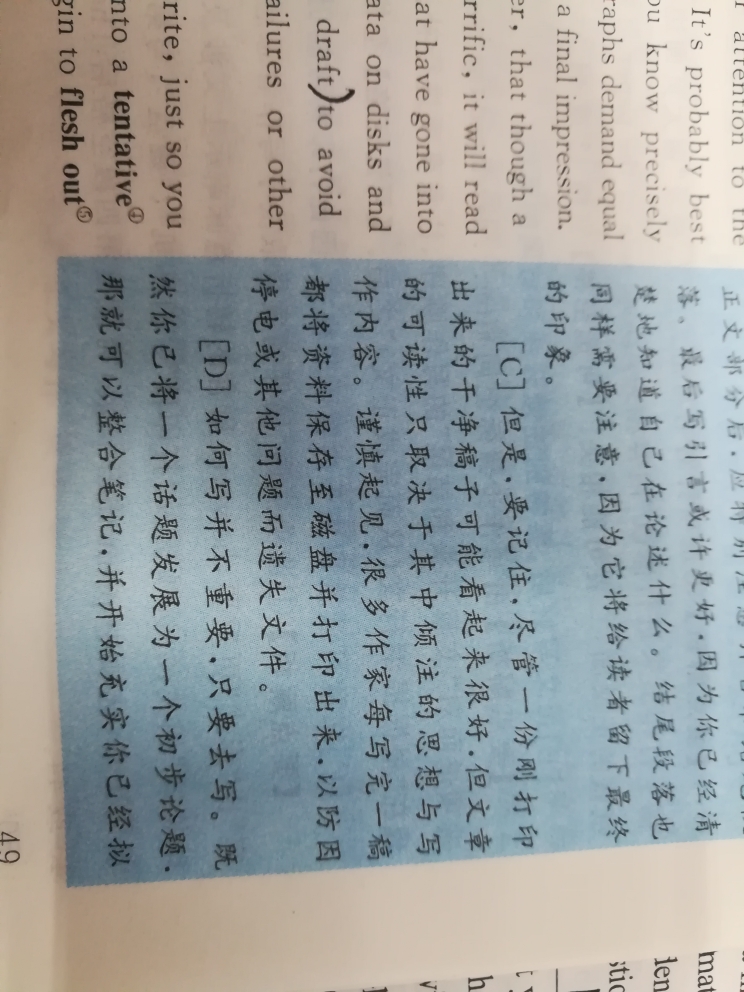 attention to the
It's probably best
ou know precisely
raphs demand equal
a final impression.
er, that though a
rrific, it will read
at have gone into
ata on disks and
draft) to avoid
ailures or other
rite, just so you
nto a tentative④
gin to flesh out⑤
正文部分后,应特别注意
落。最后写引言或许更好,因为你已经清
楚地知道自己在论述什么。结尾段落也
同样需要注意,因为它将给读者留下最终
的印象。
[C] 但是,要记住,尽管一份刚打印
出来的干净稿子可能看起来很好,但文章
的可读性只取决于其中倾注的思想与写
作内容。谨慎起见,很多作家每写完一稿
都将资料保存至磁盘并打印出来,以防因
停电或其他问题而遗失文件。
[D] 如何写并不重要,只要去写。既
然你已将一个话题发展为一个初步论题,
那就可以整合笔记,并开始充实你已经拟
49